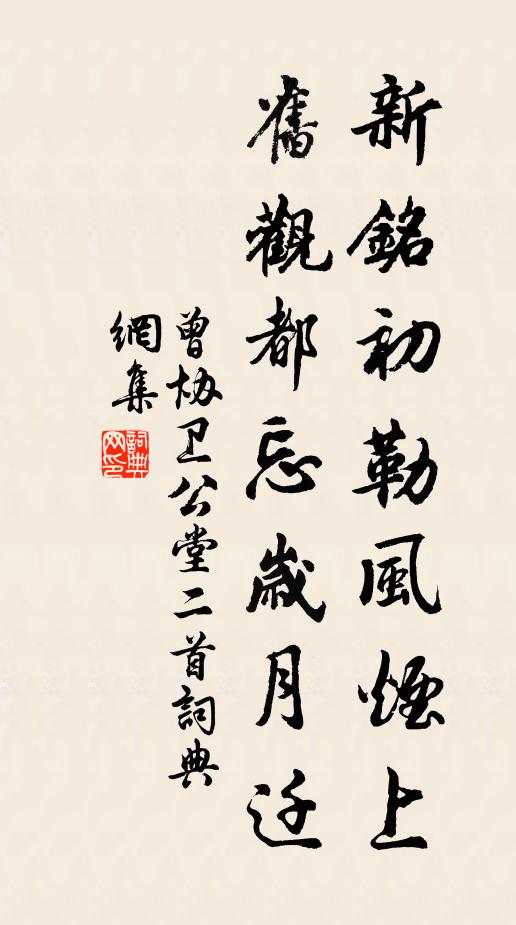 新銘初勒風煙上
舊觀都忘歲月迁
曾协卫公堂二首詞典
網集
詞典
网印